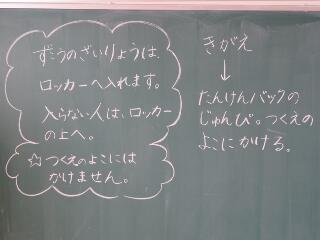 ずこうのざいりょうは、
ロッカーへ入れます。
入らない人は、ロッカー
の上へ。
☆つくえのよこには
かけません。
きがえ
↓
たんけんバックの
じゅんび。つくえの
よこにかける。